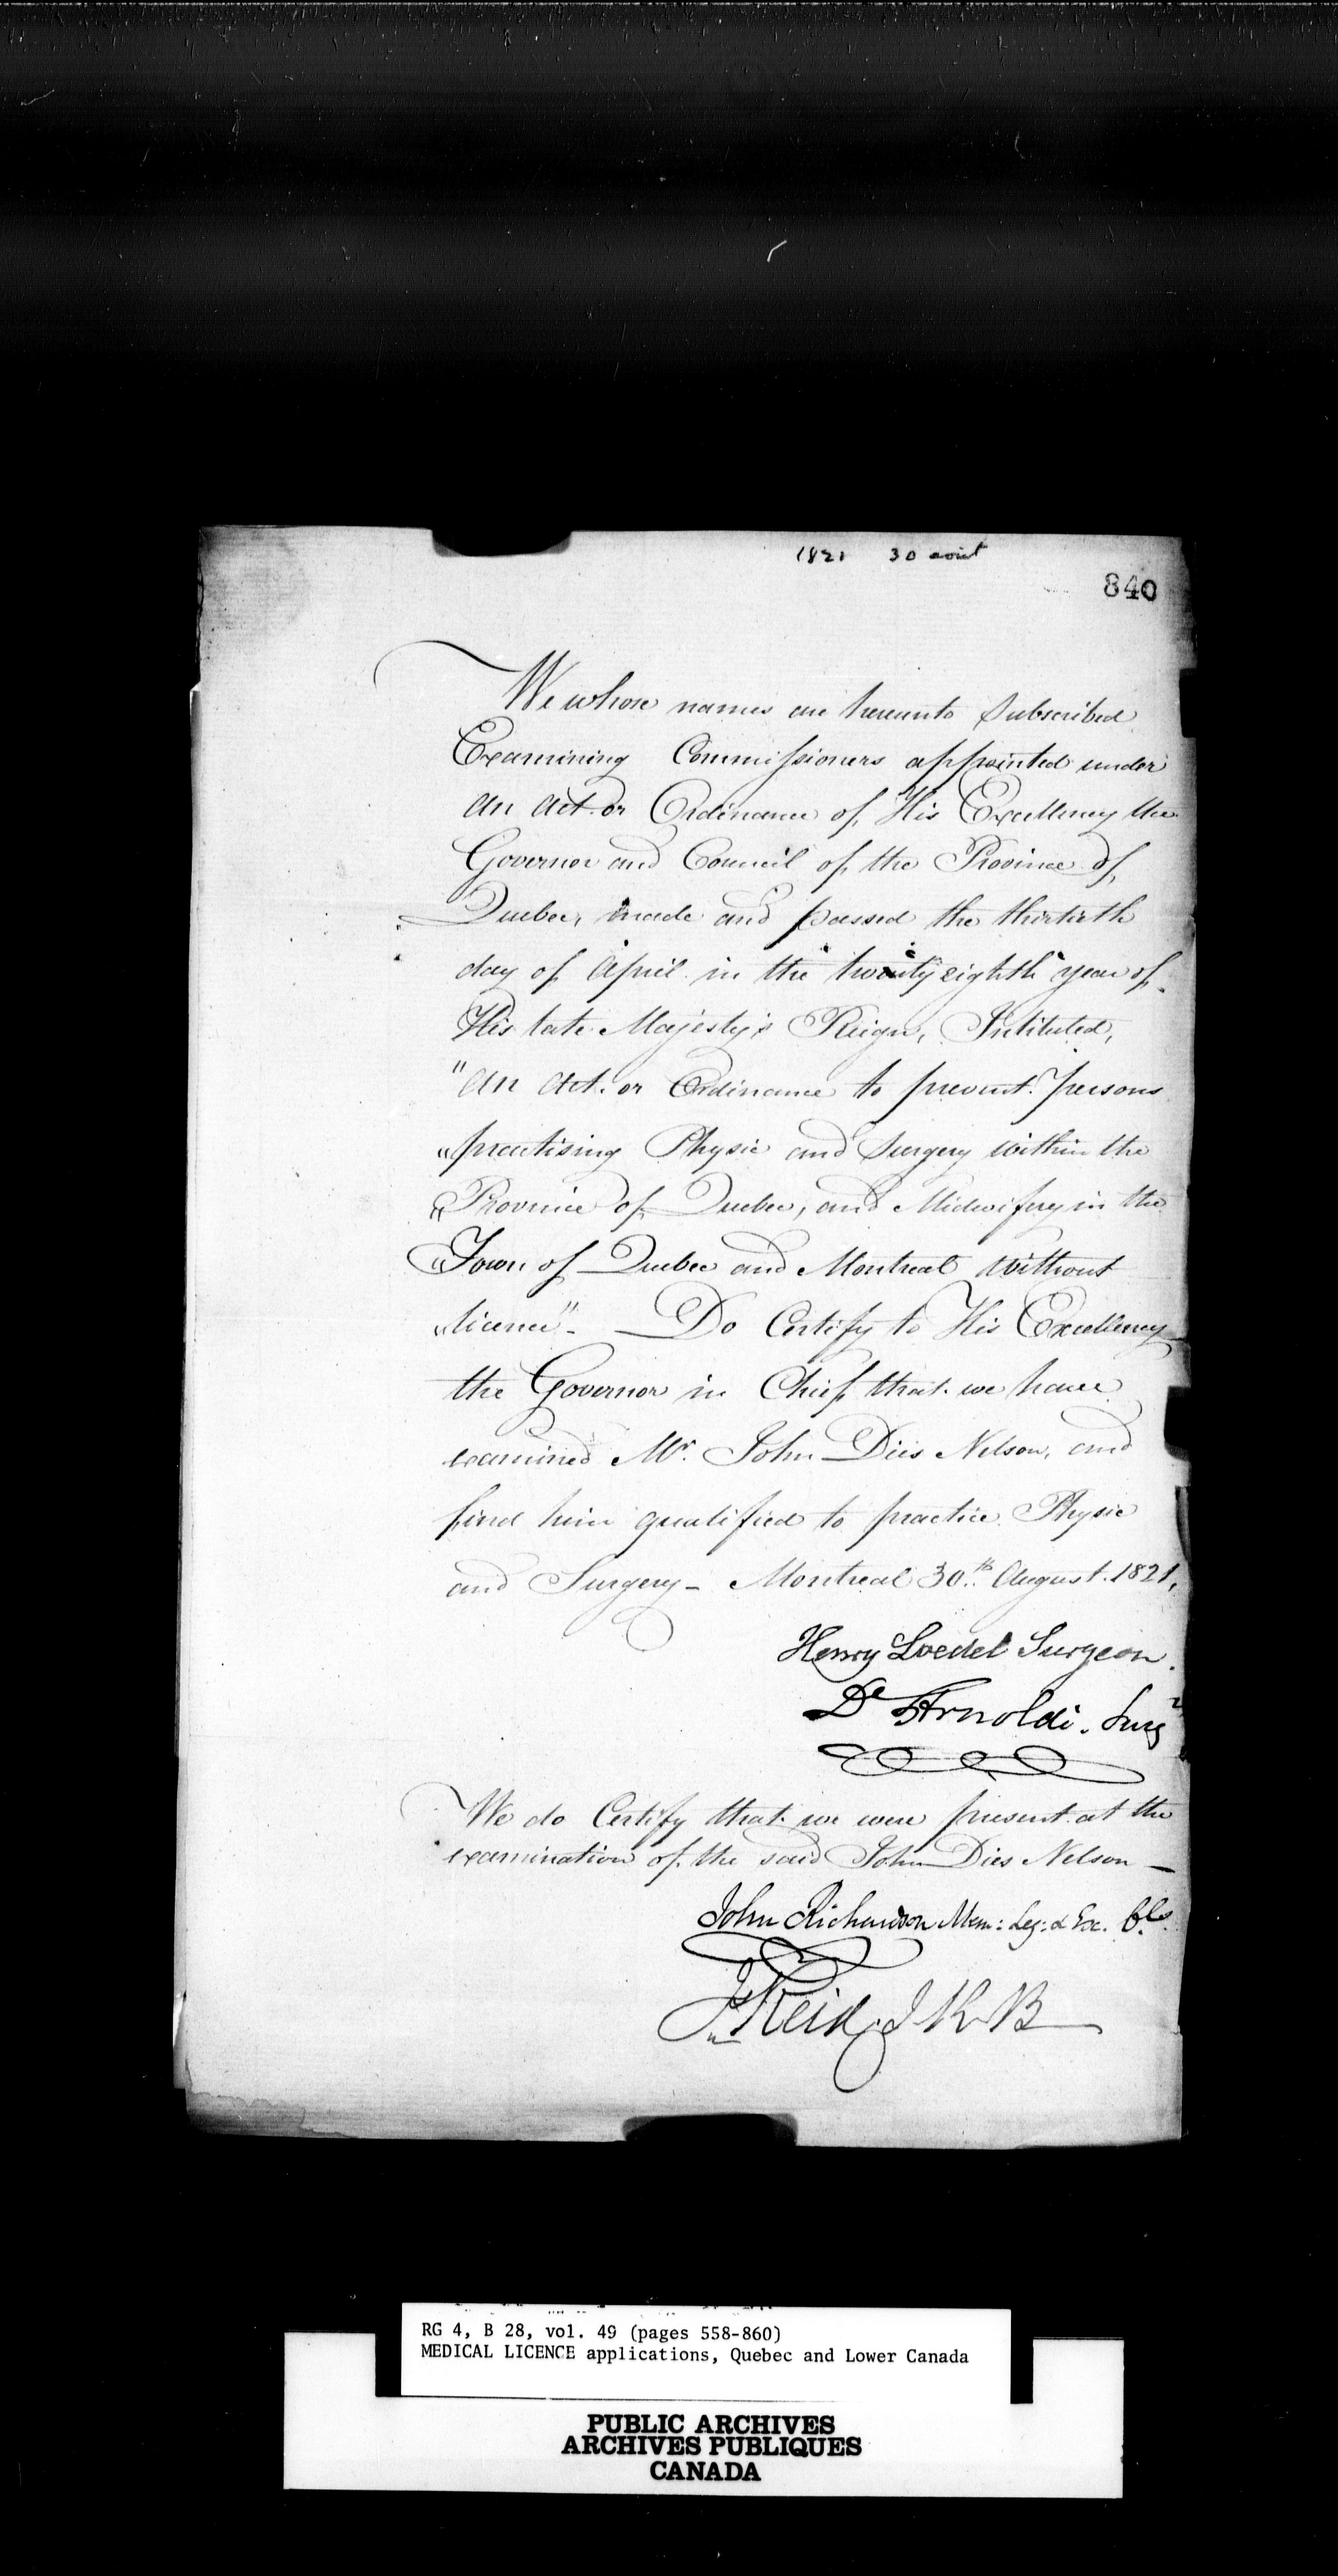 1821 30 aout
840
We whose names are hereunto subscribed
Examining Commissioners appointed under
an Act or Ordinance of His Excellency the
Governor and Council of the Province of
Quebec, made and passed the thirtieth
day of April in the twenty eighth year of
His late Majesty's Reign, Intituted,
"An Act or Ordinance to prevent persons
"practising Physic and Surgery within the
"Province of Quebec, and Midwifery in the
"Town of Quebec and Montreal without
"licence"_ Do Certify to His Excellency
the Governor in Chief that we have
examined Mr. John Dies Nelson, and
find him qualified to practice Physic
and Surgery_ Montreal 30th August 1821,
Henry Loedel Surgeon.
Dl Arnoldi. Surg
We do Certify that we were present at the
examination of the said John Dies Nelson_
John Richardson Mem: Leg: & Ex. Cls.
J Reid J K B
RG 4, B 28, vol. 49 (pages 558-860)
MEDICAL LICENCE applications, Quebec and Lower Canada
PUBLIC ARCHIVES
ARCHIVES PUBLIQUES
CANADA